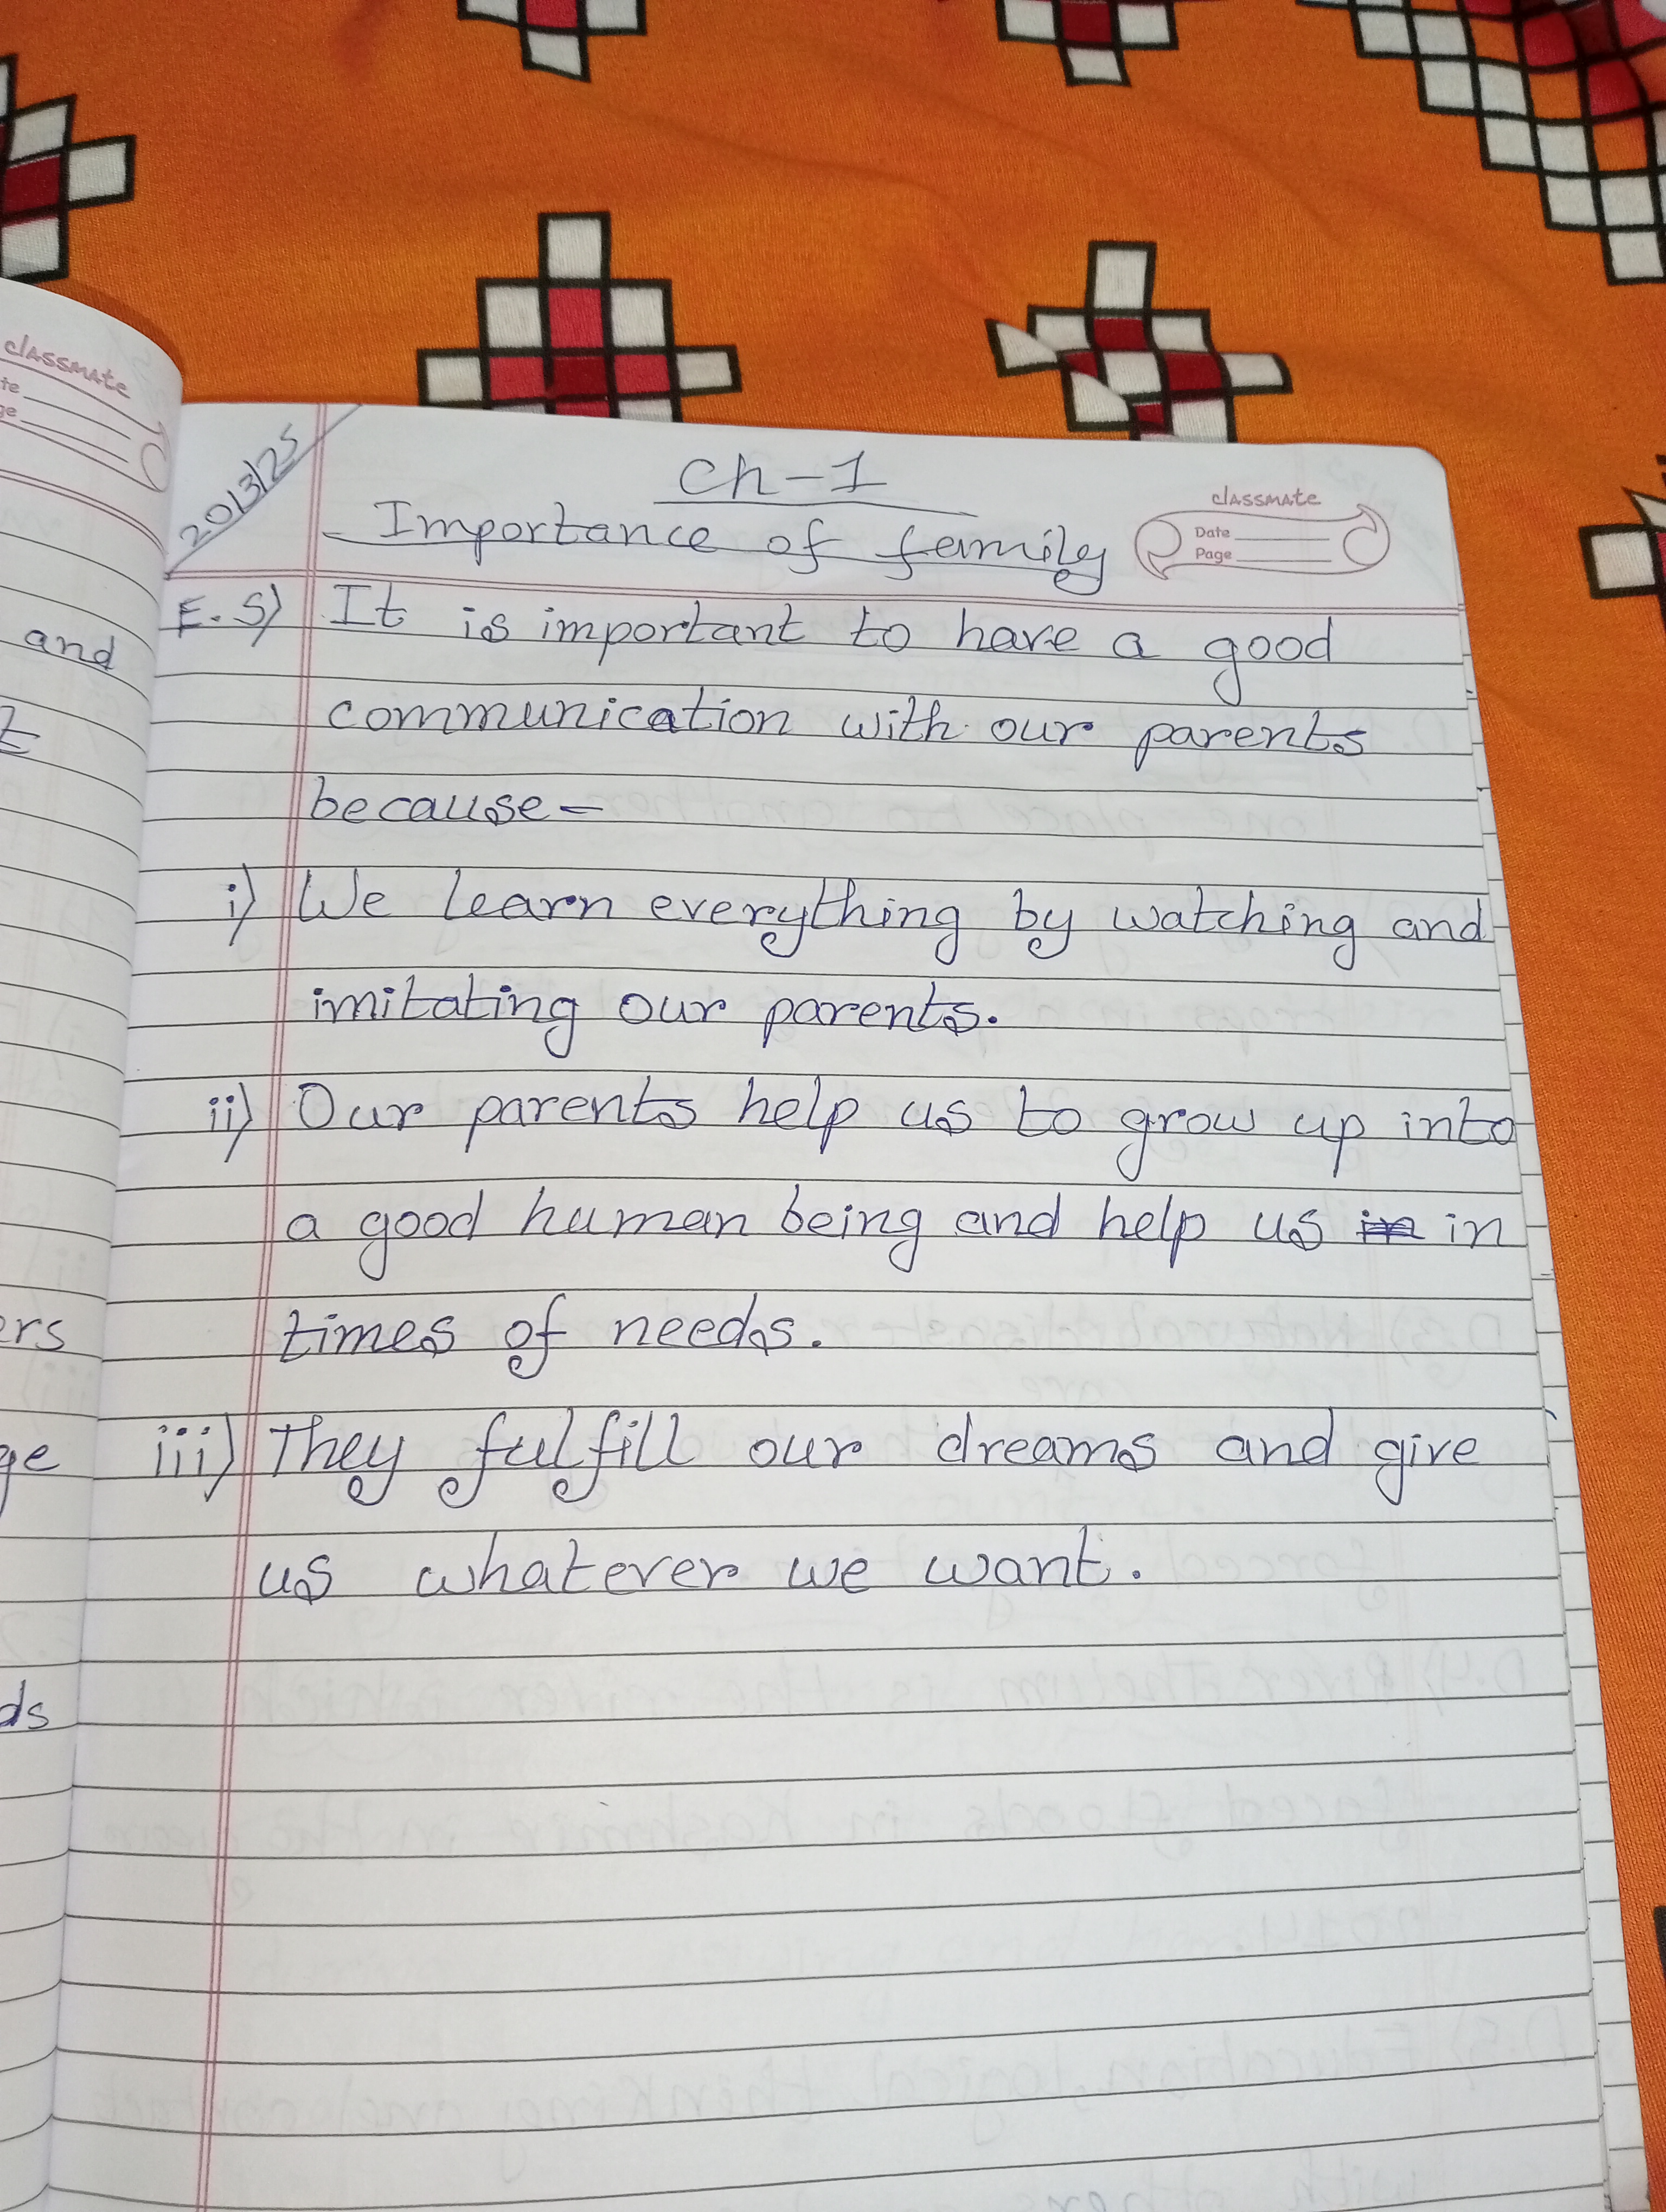 classmate
and
ers
ge
ds
20/3/25
Ch-1
Importance of family
classmate
Date
Page
E.5) It is important to have a good
communication with our parents
because-
i) We learn everything by watching and
imitating our parents.
ii) Our parents help us to grow up into
a good human being and help us in in
times of needs.
iii) They fulfill our dreams and give
us whatever we want.